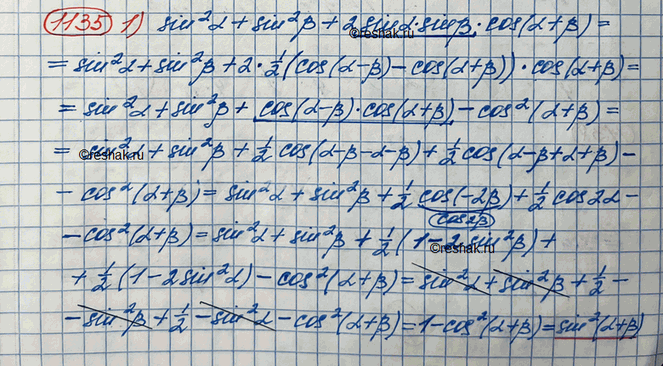 1135 1) sin²α + sin²β + 2 sinα·sinβ · cos(α+β) =
©reshak.ru
= sin²α + sin²β + 2 · 1/2 (cos(α-β) - cos(α+β)) · cos(α+β) =
= sin²α + sin²β + cos(α-β)·cos(α+β) - cos²(α+β) =
= sin²α + sin²β + 1/2 cos(α-β-α-β) + 1/2 cos(α-β+α+β) -
©reshak.ru
- cos²(α+β) = sin²α + sin²β + 1/2 cos(-2β) + 1/2 cos2α -
cos2β
- cos²(α+β) = sin²α + sin²β + 1/2 (1-2 sin²β) +
©reshak.ru
+ 1/2 (1-2sin²α) - cos²(α+β) = sin²α + sin²β + 1/2 -
- sin²β + 1/2 - sin²α - cos²(α+β) = 1 - cos²(α+β) = sin²(α+β)